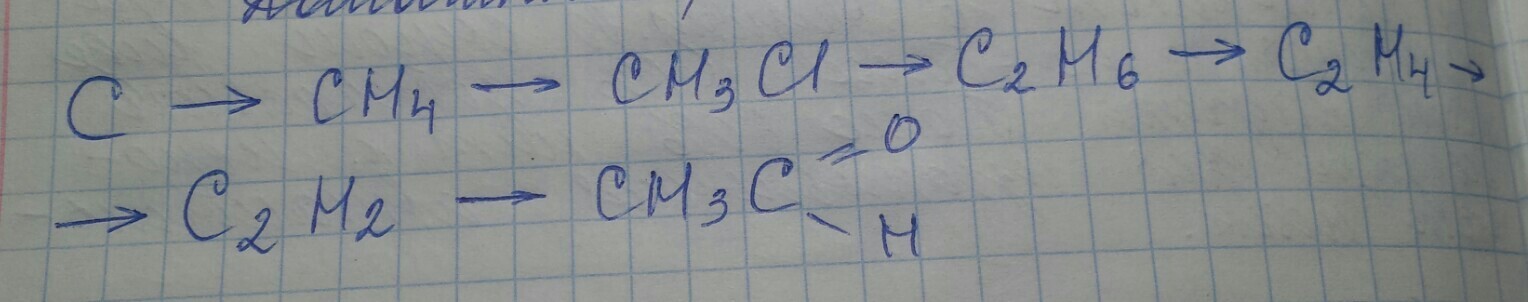 C → CH₄ → CH₃Cl → C₂H₆ → C₂H₄ →
→ C₂H₂ → CH₃C=O
-H